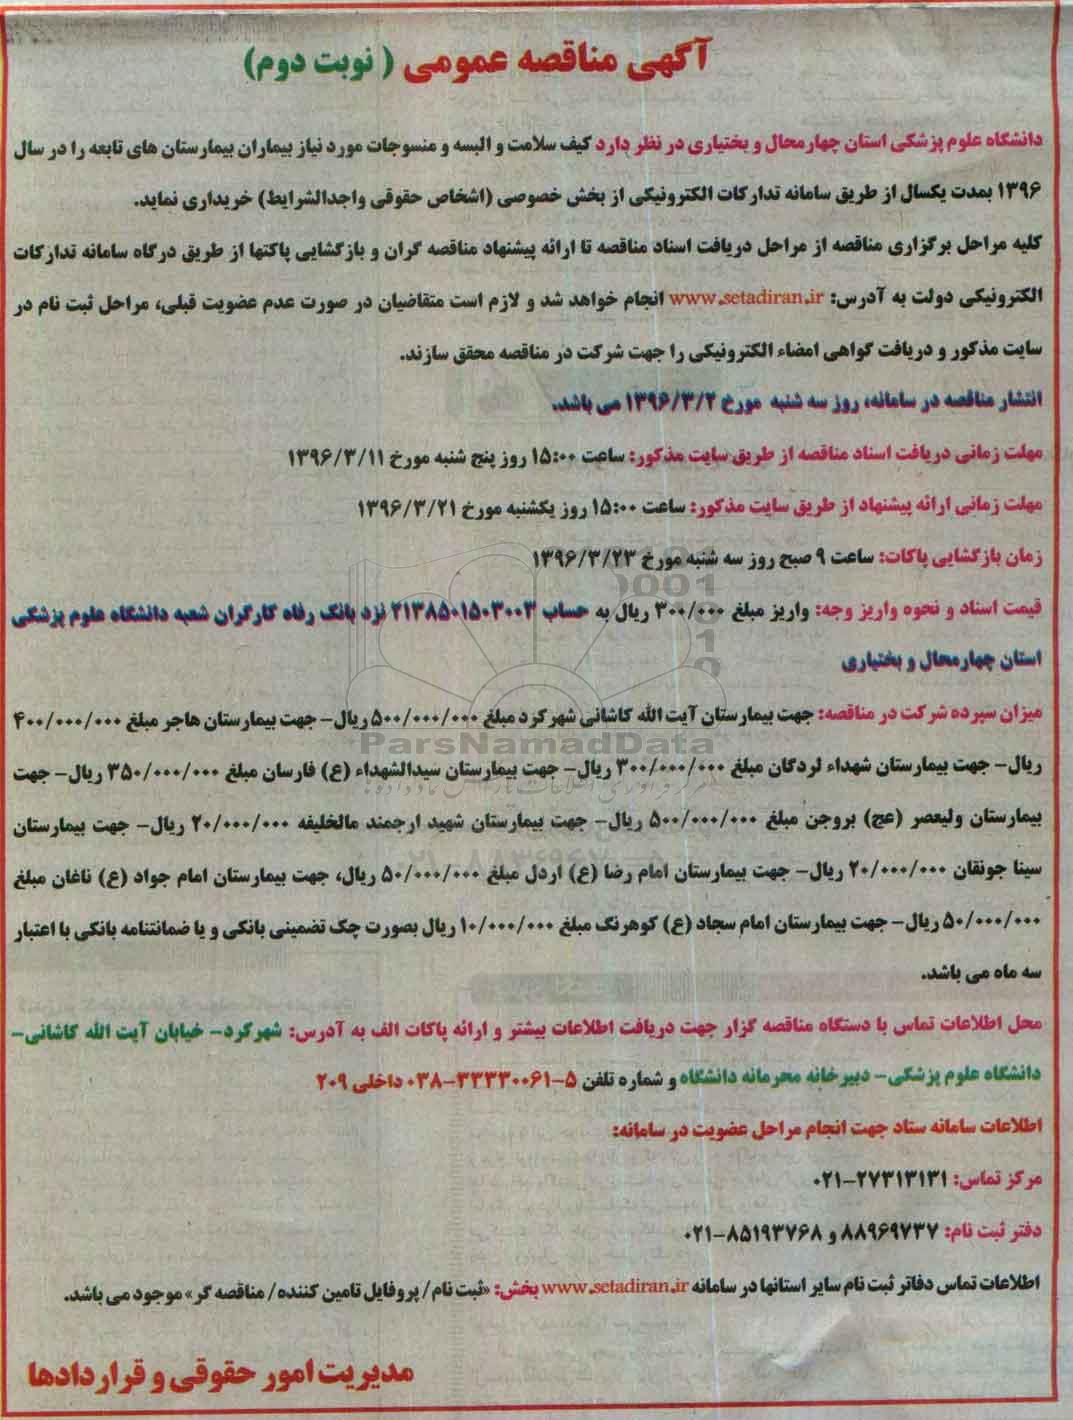 آگهی مناقصه عمومی ( نوبت دوم)
دانشگاه علوم پزشکی استان چهارمحال و بختیاری در نظر دارد کیف سلامت و البسه و منسوجات مورد نیاز بیماران بیمارستان های تابعه را در سال
۱۳۹۶ بمدت یکسال از طریق سامانه تدارکات الکترونیکی از بخش خصوصی (اشخاص حقوقی واجدالشرایط) خریداری نماید.
کلیه مراحل برگزاری مناقصه از مراحل دریافت اسناد مناقصه تا ارائه پیشنهاد مناقصه گران و بازگشایی پاکتها از طریق درگاه سامانه تدارکات
الکترونیکی دولت به آدرس: www.setadiran.ir انجام خواهد شد و لازم است متقاضیان در صورت عدم عضویت قبلی، مراحل ثبت نام در
سایت مذکور و دریافت گواهی امضاء الکترونیکی را جهت شرکت در مناقصه محقق سازند.
انتشار مناقصه در سامانه، روز سه شنبه مورخ ۱۳۹۶/۳/۲ می باشد.
مهلت زمانی دریافت اسناد مناقصه از طریق سایت مذکور: ساعت ۱۵:۰۰ روز پنج شنبه مورخ ۱۳۹۶/۳/۱۱
مهلت زمانی ارائه پیشنهاد از طریق سایت مذکور: ساعت ۱۵:۰۰ روز یکشنبه مورخ ۱۳۹۶/۳/۲۱
زمان بازگشایی پاکات: ساعت ۹ صبح روز سه شنبه مورخ ۱۳۹۶/۳/۲۳
قیمت اسناد و نحوه واریز وجه: واریز مبلغ ۳۰۰/۰۰۰ ریال به حساب ۲۱۳۸۵۰۱۵۰۳۰۰۳ نزد بانک رفاه کارگران شعبه دانشگاه علوم پزشکی
استان چهارمحال و بختیاری
میزان سپرده شرکت در مناقصه: جهت بیمارستان آیت الله کاشانی شهرکرد مبلغ ۵۰۰/۰۰۰/۰۰۰ ریال- جهت بیمارستان هاجر مبلغ ۴۰۰/۰۰۰/۰۰۰
ریال- جهت بیمارستان شهداء لردگان مبلغ ۳۰۰/۰۰۰/۰۰۰ ریال- جهت بیمارستان سیدالشهداء (ع) فارسان مبلغ ۳۵۰/۰۰۰/۰۰۰ ریال- جهت
بیمارستان ولیعصر (عج) بروجن مبلغ ۵۰۰/۰۰۰/۰۰۰ ریال- جهت بیمارستان شهید ارجمند مالخلیفه ۲۰/۰۰۰/۰۰۰ ریال- جهت بیمارستان
سینا جونقان ۲۰/۰۰۰/۰۰۰ ریال- جهت بیمارستان امام رضا (ع) اردل مبلغ ۵۰/۰۰۰/۰۰۰ ریال، جهت بیمارستان امام جواد (ع) ناغان مبلغ
۵۰/۰۰۰/۰۰۰ ریال- جهت بیمارستان امام سجاد (ع) کوهرنگ مبلغ ۱۰/۰۰۰/۰۰۰ ریال بصورت چک تضمینی بانکی و یا ضمانتنامه بانکی با اعتبار
سه ماه می باشد.
محل اطلاعات تماس با دستگاه مناقصه گزار جهت دریافت اطلاعات بیشتر و ارائه پاکات الف به آدرس: شهرکرد- خیابان آیت الله کاشانی-
دانشگاه علوم پزشکی- دبیرخانه محرمانه دانشگاه و شماره تلفن ۵-۳۳۳۳۰۰۶۱-۰۳۸ داخلی ۲۰۹
اطلاعات سامانه ستاد جهت انجام مراحل عضویت در سامانه:
مرکز تماس: ۲۷۳۱۳۱۳۱-۰۲۱
دفتر ثبت نام: ۸۸۹۶۹۷۳۷ و ۸۵۱۹۳۷۶۸-۰۲۱
اطلاعات تماس دفاتر ثبت نام سایر استانها در سامانه www.setadiran.ir بخش: «ثبت نام/ پروفایل تامین کننده/ مناقصه گر» موجود می باشد.
مدیریت امور حقوقی و قراردادها
ParsNamadData